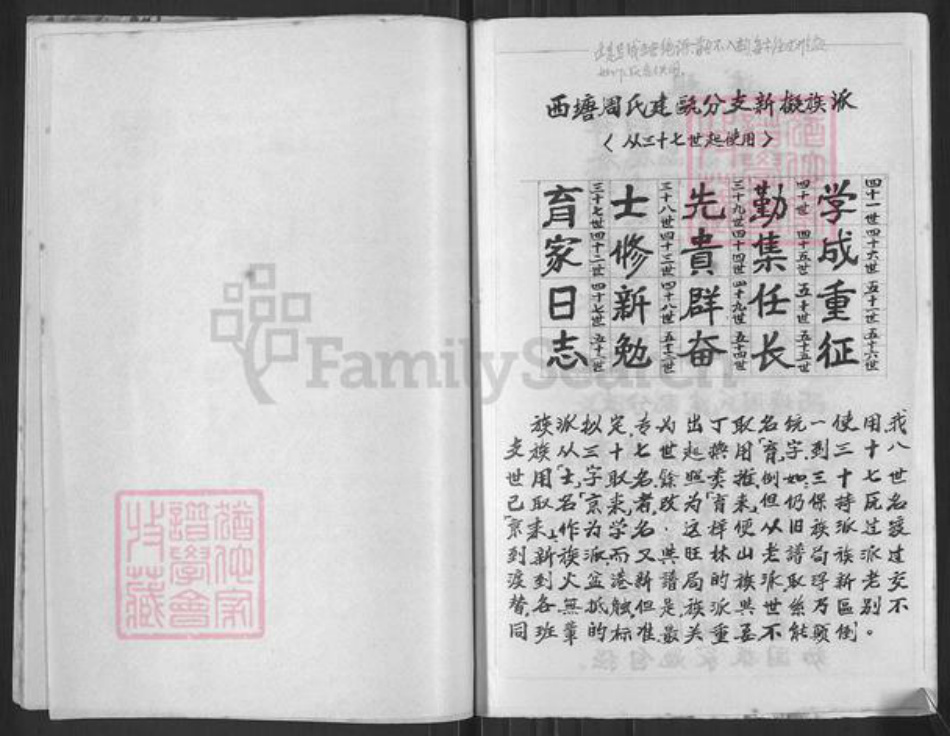 西塘周氏建甌分支新擬族派
〈从三十七世起使用〉
育 三十七世 士 三十八世 先 三十九世 勤 四十世 学 四十一世
家 四十二世 修 四十三世 貴 四十四世 集 四十五世 成 四十六世
日 四十七世 新 四十八世 群 四十九世 任 五十世 重 五十一世
志 五十二世 勉 五十三世 奋 五十四世 长 五十五世 征 五十六世
族派拟定,专为出丁取名统一使用我
支族从三十七世起照用「育」字到三十八
世用「士」字取名,餘类推,例如:三十七世
已取名「京来」者,改为「育来」但仍保持
「京来」作为学名.这样便从旧族派过渡
到新族派而又與旺林山老譜局族派
渡到火盆港新譜局的族派取新老交
替各無抵触,但是族派與世系乃區别不
同班輩的标准最关重要不能颠倒。
猶他家譜學會收藏
FamilySearch